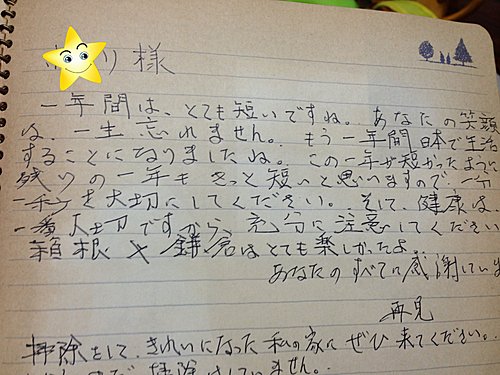 り様
一年間は、とても短いですね。あなたの笑顔
は、一生忘れません。もう一年間日本で生活
することになりましたね。この一年が短かったように
残りの一年もきっと短いと思いますので、一分
一秒を大切にしてください。そして、健康は
一番大切ですから、充分に注意してください
箱根と鎌倉はとても楽しかったよ。
あなたのすべてに感謝していま
再見
掃除をして、きれいになった私の家にぜひ来てください。
掃除はしていません。